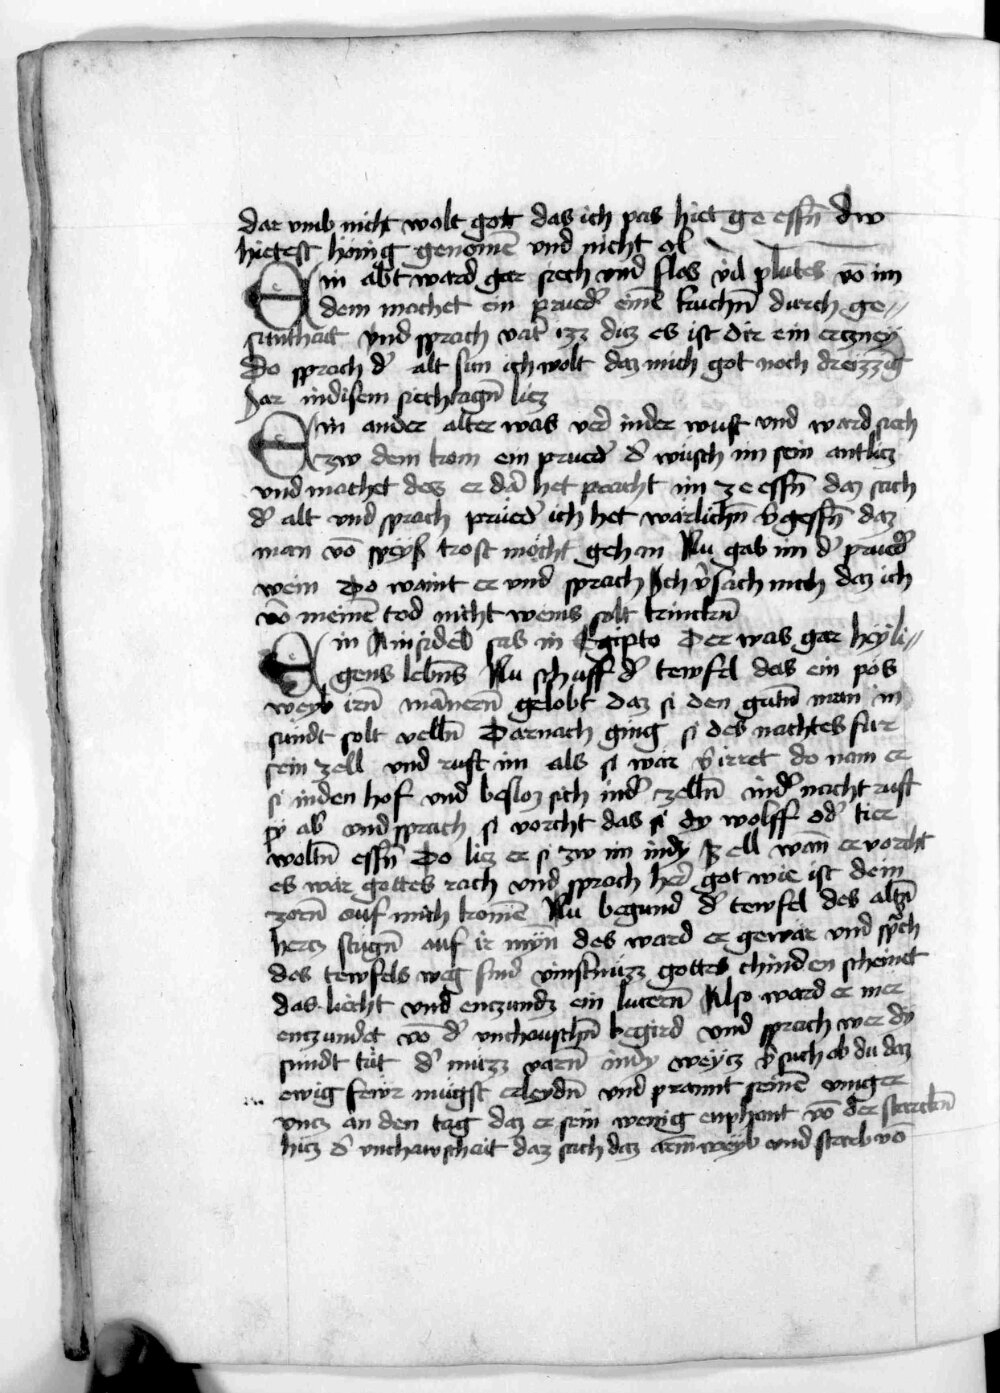 dar vmb nicht wolt got das ich pas hiet ge essn̄ dw
hietest hönig genomē vnd nicht ol
Ein abt ward gar siech vnd flos vil plutes vō im
dem machet ein prued̉ einē kuchn̄ durch ge〃
suntheit vnd sprach vat̉ izz diz es ist dir ein ercznei
Do sprach d̉ alt sun ich wolt daz mich got noch dreizzig
Jar in disem siechtagn̄ liez
Ein ander alter was verr in der wust vnd ward siech
czw dem kom ein prued̉ d̉ wusch im sein antlicz
vnd machet des er da het pracht im ze essn̄ daz sach
d̉ alt vnd sprach prüed̉ ich het wärlichn̄ v̉gessn̄ daz
man vō speyß trost möcht gehan Nu gab im d̉ prued̉
wein Do waint er vnd sprach Ich v̉sach mich daz ich
vō meinē tod nicht weins solt trinckn̄
Ein Ainsidel sas in Egipto Der was gar heyli〃
gens lebns̄ Nu schuff d̉ tewfel das ein pös
weyb irn̄ mannern̄ gelobt daz si den gutn̄ man in
sündt solt velln̄ Darnach ging si des nachtes für
sein zell vnd ruft im als si wär v̉irret do nam er
si in den hof vnd besloz sich in d̉ zelln̄ in d̉ nacht ruft
sy ab̉ vnd sprach si vorcht das si dy wolff od̉ tier
woltn̄ essn̄ Do liez er si zw im in dy Zell wan̄ er vorcht
es wär gottes rach vnd sprach her̉ got wie ist dein
zorn̄ auf mich komē Nu begund d̉ tewfel des altn̄
hercz stügn̄ auf ir myn̄ des ward er gewär vnd sprach
des tewfels weg sind vinst̉nüzz gottes chinden scheinet
das liecht vnd enczundt ein lucern̄ Also ward er mer
enczundet vō d̉ vncheuschn̄ begird vnd sprach wer dy
sündt tüt d̉ müzz varn̄ in dy weycz v̉such ob du daz
ewig fewr mügst erleydn̄ vnd prannt seinē vinger
vncz an den tag daz er sein wenig enphant vō der starckn̄
hicz d̉ vnchawscheit daz sach daz arm̄ weyb vnd starb vō